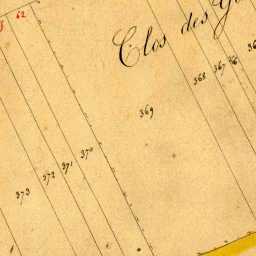 62
Clos des
369
368
367
370
371
372
373